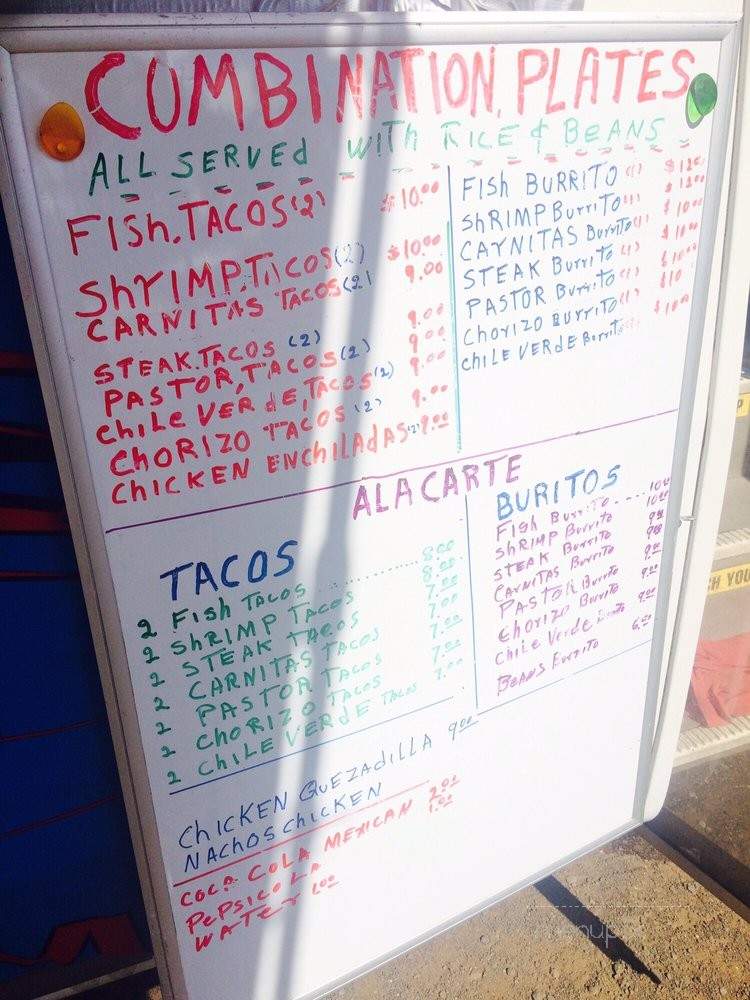 COMBINATION, PLATES
ALL SERVEd WITH RICE & BEANS
FISH.TACOS(2) $10.00
ShRIMP,TACOS(2) $10.00
CARNITAS TACOS(2) 9.00
STEAK.TACOS (2) 9.00
PASTOR,TACOS(2) 9.00
ChiLE VERdE,TACOS(2) 9.00
ChORIZO TACOS(2) 9.00
CHICKEN ENCHILADAS(2) 9.00
FISH BURRITO(1) $12.00
ShRIMP BurriTO(1) $12.00
CARNITAS BurriTO(1) $10.00
STEAK BurriTO(1) $10.00
PASTOR BurriTO(1) $10.00
ChORIZO BURRITO(1) $10
ChiLE VERdE BurriTO $10.00
ALACARTE
TACOS
2 FISh TACOS 8.00
2 ShRIMP TACOS 8.00
2 STEAK TACOS 7.00
2 CARNITAS TACOS 7.00
2 PASTOR TACOS 7.00
2 ChORIZO TACOS 7.00
2 ChiLE VERdE TACOS 7.00
BURITOS
FISh BurriTO 10.00
ShRIMP BurriTO 10.00
STEAK BurriTO 9.00
CARNITAS BurriTO 9.00
PASTOR BurriTO 9.00
ChORIZO BurriTO 9.00
ChiLE VERdE BurriTO 9.00
BEANS BurriTO 6.00
ChiCKEN QuEZAdiLLA 9.00
NAChOS ChiCKEN
COCA COLA MEXICAN 2.00
PEPSICOLA 1.00
WATER 1.00